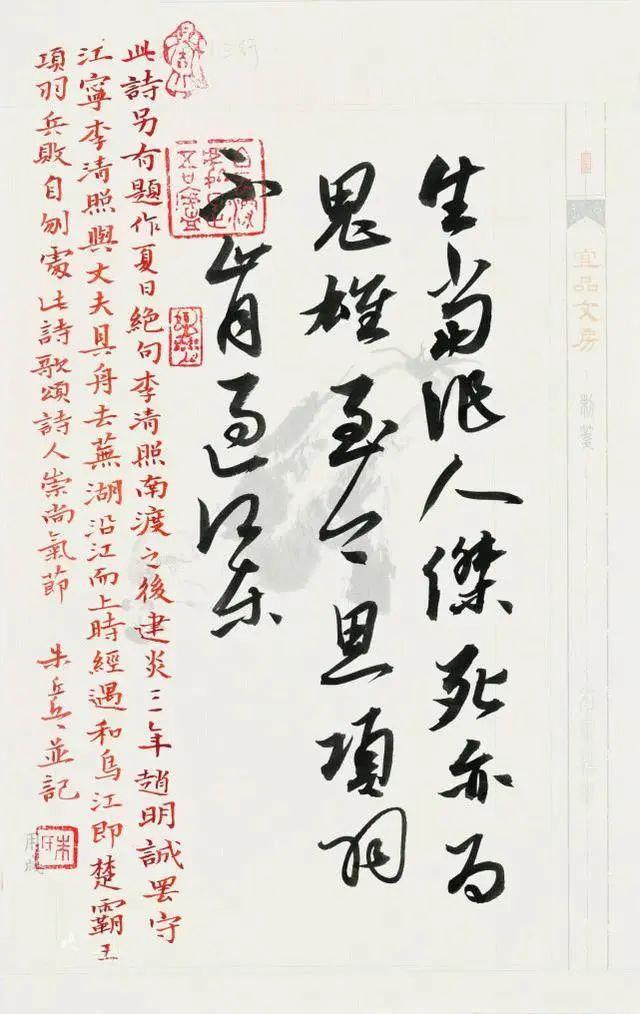 宜品文房
生當作人傑死亦為
鬼雄至今思項羽
不肯過江東
此詩另有題作夏日絕句李清照南渡之後建炎三年趙明誠罷守
江寧李清照與丈夫具舟去蕪湖沿江而上時經過和烏江即楚霸王
項羽兵敗自刎處此詩歌頌詩人崇尚氣節 朱兵並記